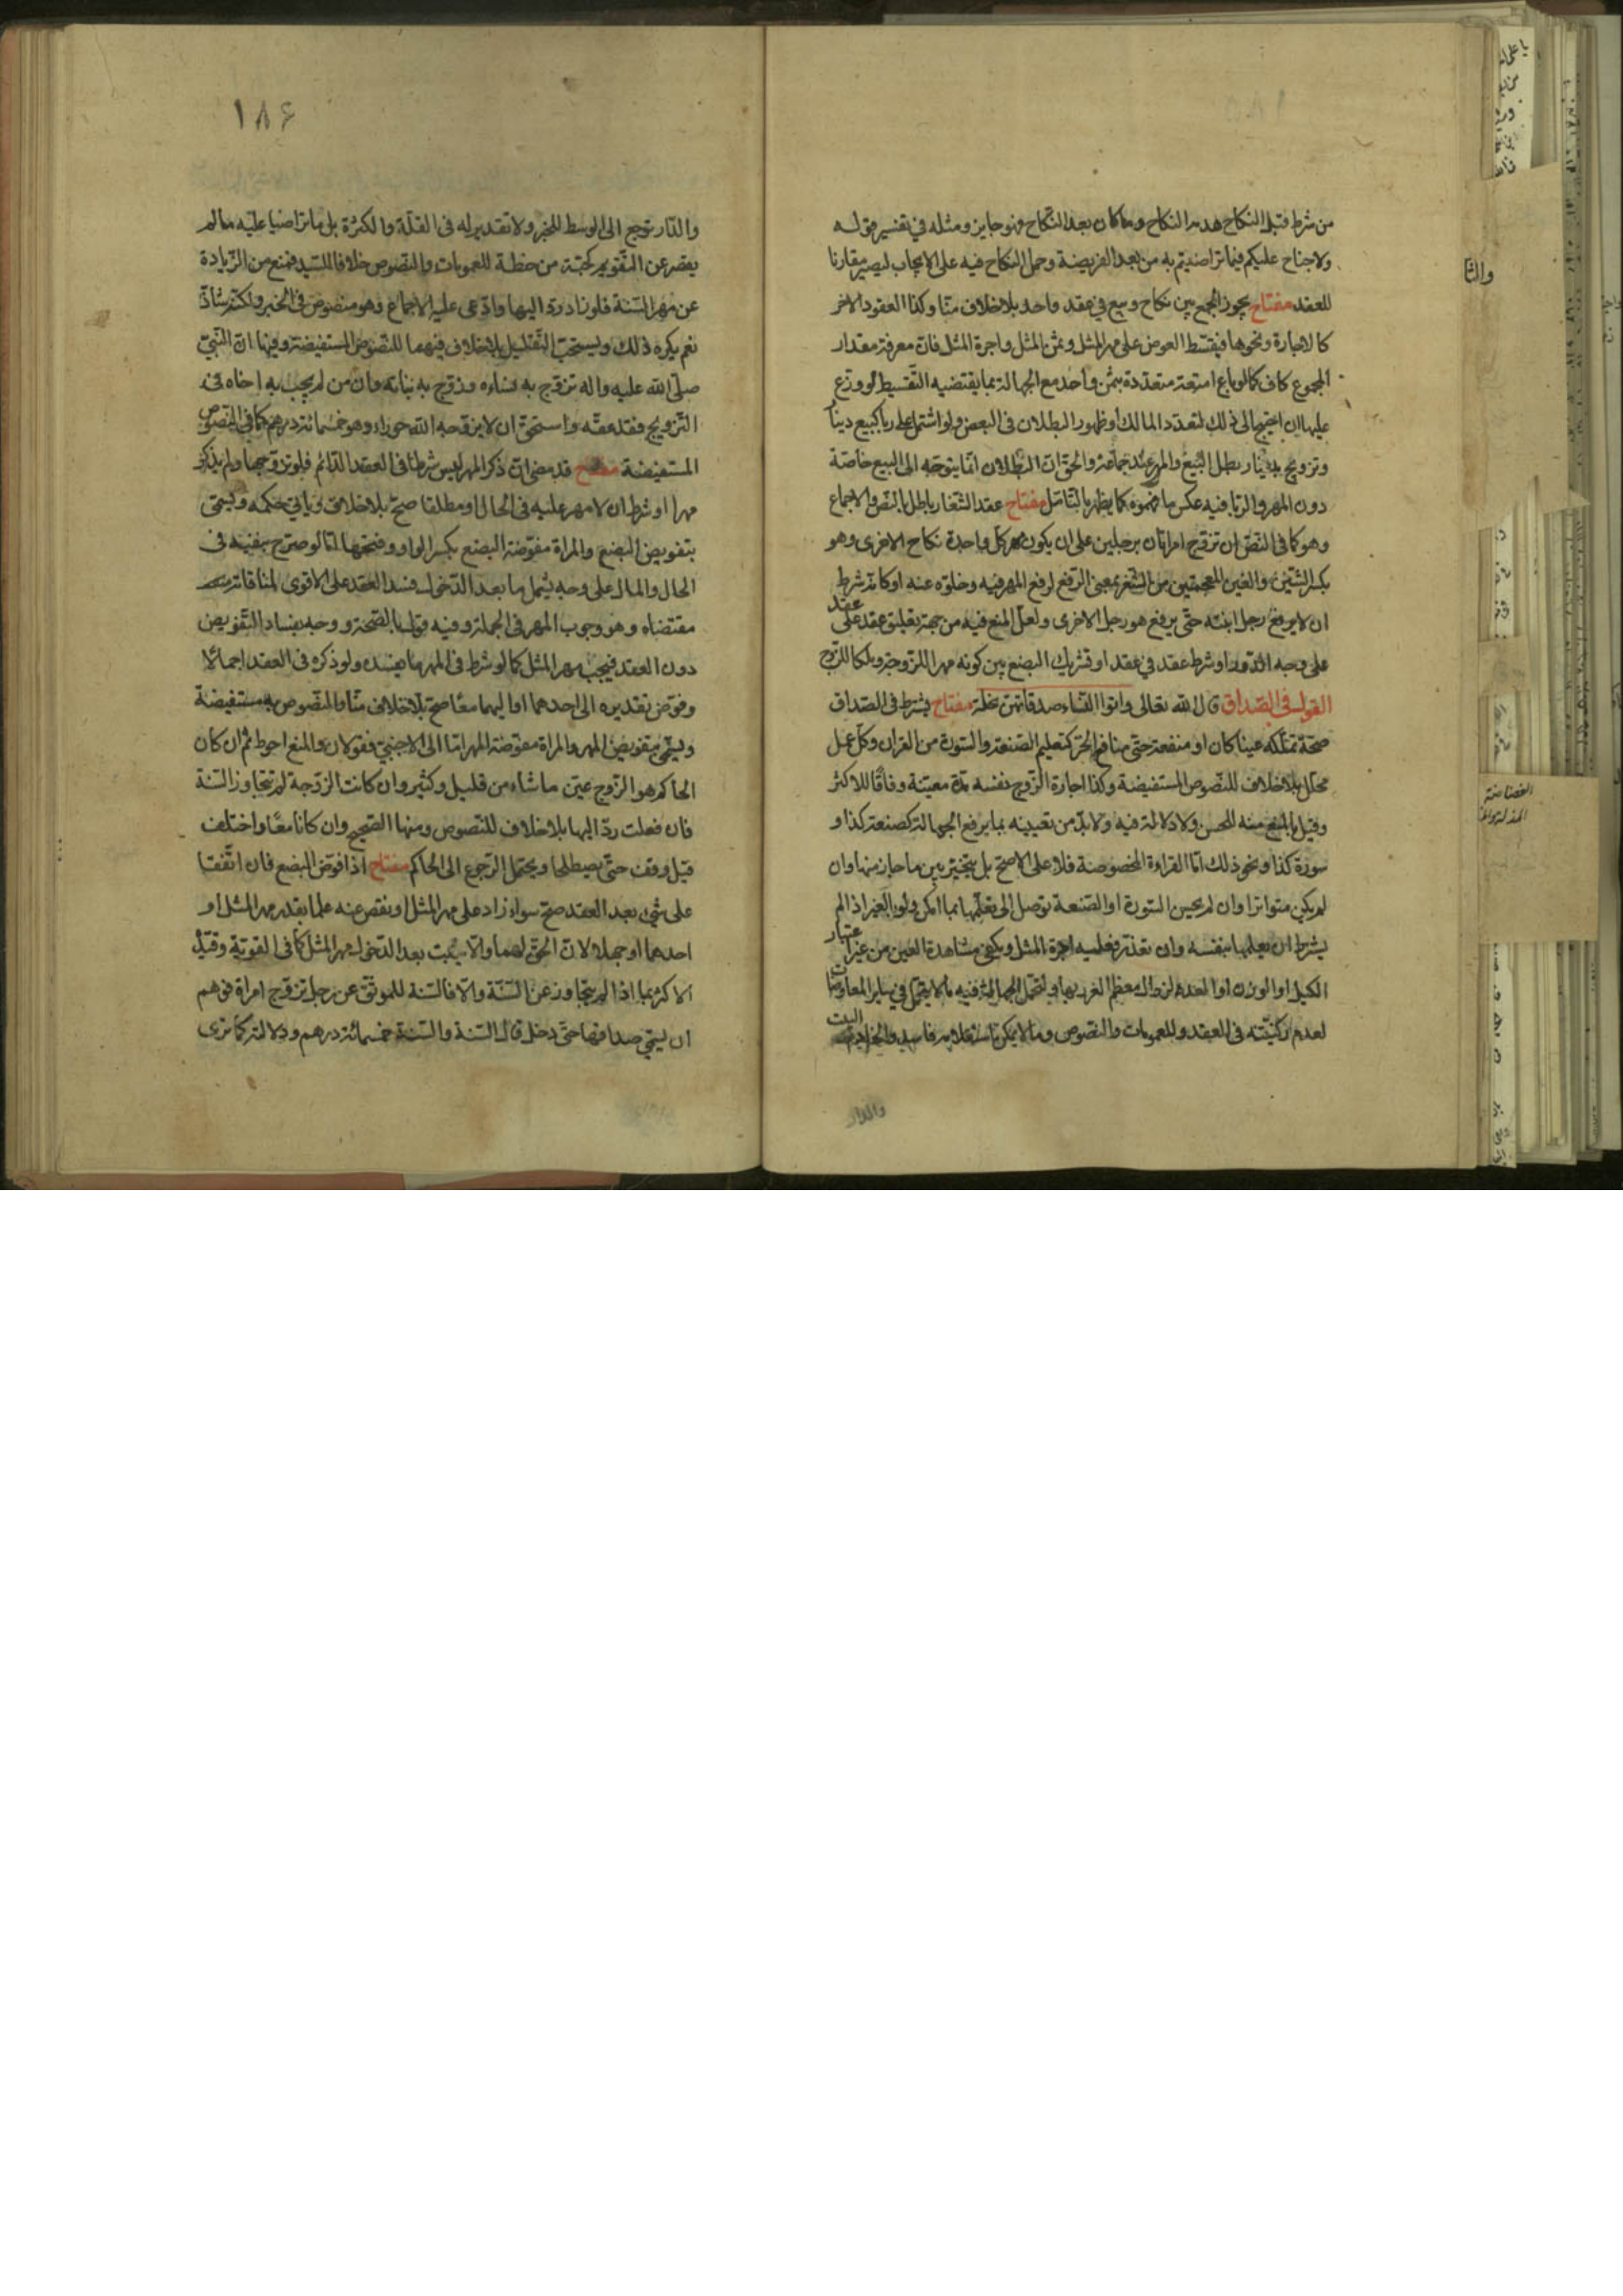 من شرط قبل النكاح هدمه النكاح وما كان بعد النكاح فهو جايز ومثله في تفسير قوله
ولا جناح عليكم فيما تراضيتم به من بعد الفريضة وحمل النكاح فيه على الايجاب ليصير مقارنا
للعقد مفتاح يجوز الجمع بين نكاح وبيع في عقد واحد بلا خلاف منا وكذا العقود الاخر
كالاجارة ونحوها فيقسط العوض على مهر المثل وثمن المثل واجرة المثل فان معرفة مقدار
المجموع كاف كما لو باع امتعة متعددة بثمن واحد مع الجهالة بما يقتضيه التقسيط لو وزع
عليها ان احتيج الى ذلك لتعدد المالك او ظهور البطلان في البعض ولو اشتمل على ربا كبيع دينار
وتزويج بدينار بطل البيع والمهر عند جماعة والحق ان البطلان انما يتوجه الى البيع خاصة
دون المهر والربا فيه عكس ما فهموه كما يظهر بالتامل مفتاح عقد الشغار باطل بالنص والاجماع
وهو كما في النص ان تزوج امراتان برجلين على ان يكون مهر كل واحدة نكاح الاخرى وهو
بكسر الشين والغين المعجمتين من الشغر بمعنى الرفع لرفع المهر فيه وخلوه عنه او كانه شرط
ان لا يرفع رجل ابنته حتى يرفع هو رجل الاخرى ولعل المنع فيه من جهة تعليق عقد على عقد
على وجه الدور او شرط عقد في عقد او تشريك البضع بين كونه مهرا للزوجة وملكا للزوج
القول في الصداق قال الله تعالى واتوا النساء صدقاتهن نحلة مفتاح يشترط في الصداق
صحة تملكه عينا كان او منفعة حتى منافع الحر كتعليم الصنعة والسورة من القران وكل عمل
محلل بلا خلاف للنصوص المستفيضة وكذا اجارة الزوج نفسه مدة معينة وفاقا للاكثر
وقيل بالمنع منه للحسن ولا دلالة فيه ولا بد من تعيينه بما يرفع الجهالة كصنعة كذا و
سورة كذا ونحو ذلك اما القراءة المخصوصة فلا على الاصح بل يتخير بين ما جاز منها وان
لم يكن متواترا وان لم يحسن السورة او الصنعة توصل الى تعلمها بما امكن ولو بالغير اذا لم
يشترط ان يعلمها بنفسه وان تعذر فعليه اجرة المثل ويكفي مشاهدة العين من غير اعتبار
الكيل او الوزن او العد لزوال معظم الغرر بها فيتحمل الجهالة فيه ما لا يتحمل في ساير المعاوضات
لعدم ركنيته في العقد وللعمومات والنصوص وما لا يمكن استعلامه فاسد والخادم البيت
والدار
١٨۶
والدار توجع الى الوسط للخبر ولا تقدير له في القلة والكثرة بل ما تراضيا عليه ما لم
يقصر عن التقويم كحبة من حنطة للعمومات والنصوص خلافا للسيد فمنع من الزيادة
عن مهر السنة فلو زاد رد اليها وادعى عليه الاجماع وهو منصوص في الخبر ولكنه شاذ
نعم يكره ذلك ويستحب التقليل بلا خلاف فيهما للنصوص المستفيضة وفيها ان النبي
صلى الله عليه واله تزوج به نساءه وزوج به بناته وان من لم يجب به اخاه في
التزويج فقد عقه واستحق ان لا يزوجه الله حوراء وهو خمسمائة درهم كما في النصوص
المستفيضة مفتاح قد مضى ان ذكر المهر ليس شرطا في العقد الدائم فلو تزوجها ولم يذكر
مهرا او شرط ان لا مهر عليه في الحال او مطلقا صح بلا خلاف وياتي حكمه ويسمى
بتفويض البضع والمراة مفوضة البضع بكسر الواو وفتحها اما لو صرح بنفيه في
الحال والمال على وجه يشمل ما بعد الدخول فسد العقد على الاقوى لمنافاته
مقتضاه وهو وجوب المهر في الجملة وفيه قول بالصحة ووجه بفساد التفويض
دون العقد فيجب مهر المثل كما لو شرط في المهر ما يفسده ولو ذكره في العقد اجمالا
وفوض تقديره الى احدهما او اليهما معا صح بلا خلاف منا والنصوص به مستفيضة
ويسمى بتفويض المهر والمراة مفوضة المهر اما الى الاجنبي فقولان والمنع احوط ثم ان كان
الحاكم هو الزوج عين ما شاء من قليل وكثير وان كانت الزوجة لم تتجاوز السنة
فان فعلت رد اليها بلا خلاف للنصوص ومنها الصحيح وان كانا معا واختلف
قيل وقف حتى يصطلحا ويحتمل الرجوع الى الحاكم مفتاح اذا فوض البضع فان اتفقا
على شيء بعد العقد صح سواء زاد على مهر المثل او نقص عنه علما بقدر مهر المثل او
احدهما او جهلا لان الحق لهما والا يثبت بعد الدخول مهر المثل كما في القوية وقيده
الاكثر بما اذا لم يتجاوز عن السنة والا فالسنة للموثق عن رجل تزوج امراة فوهم
ان يسمي صداقها حتى دخل قال السنة والسنة خمسمائة درهم ودلالته كما ترى